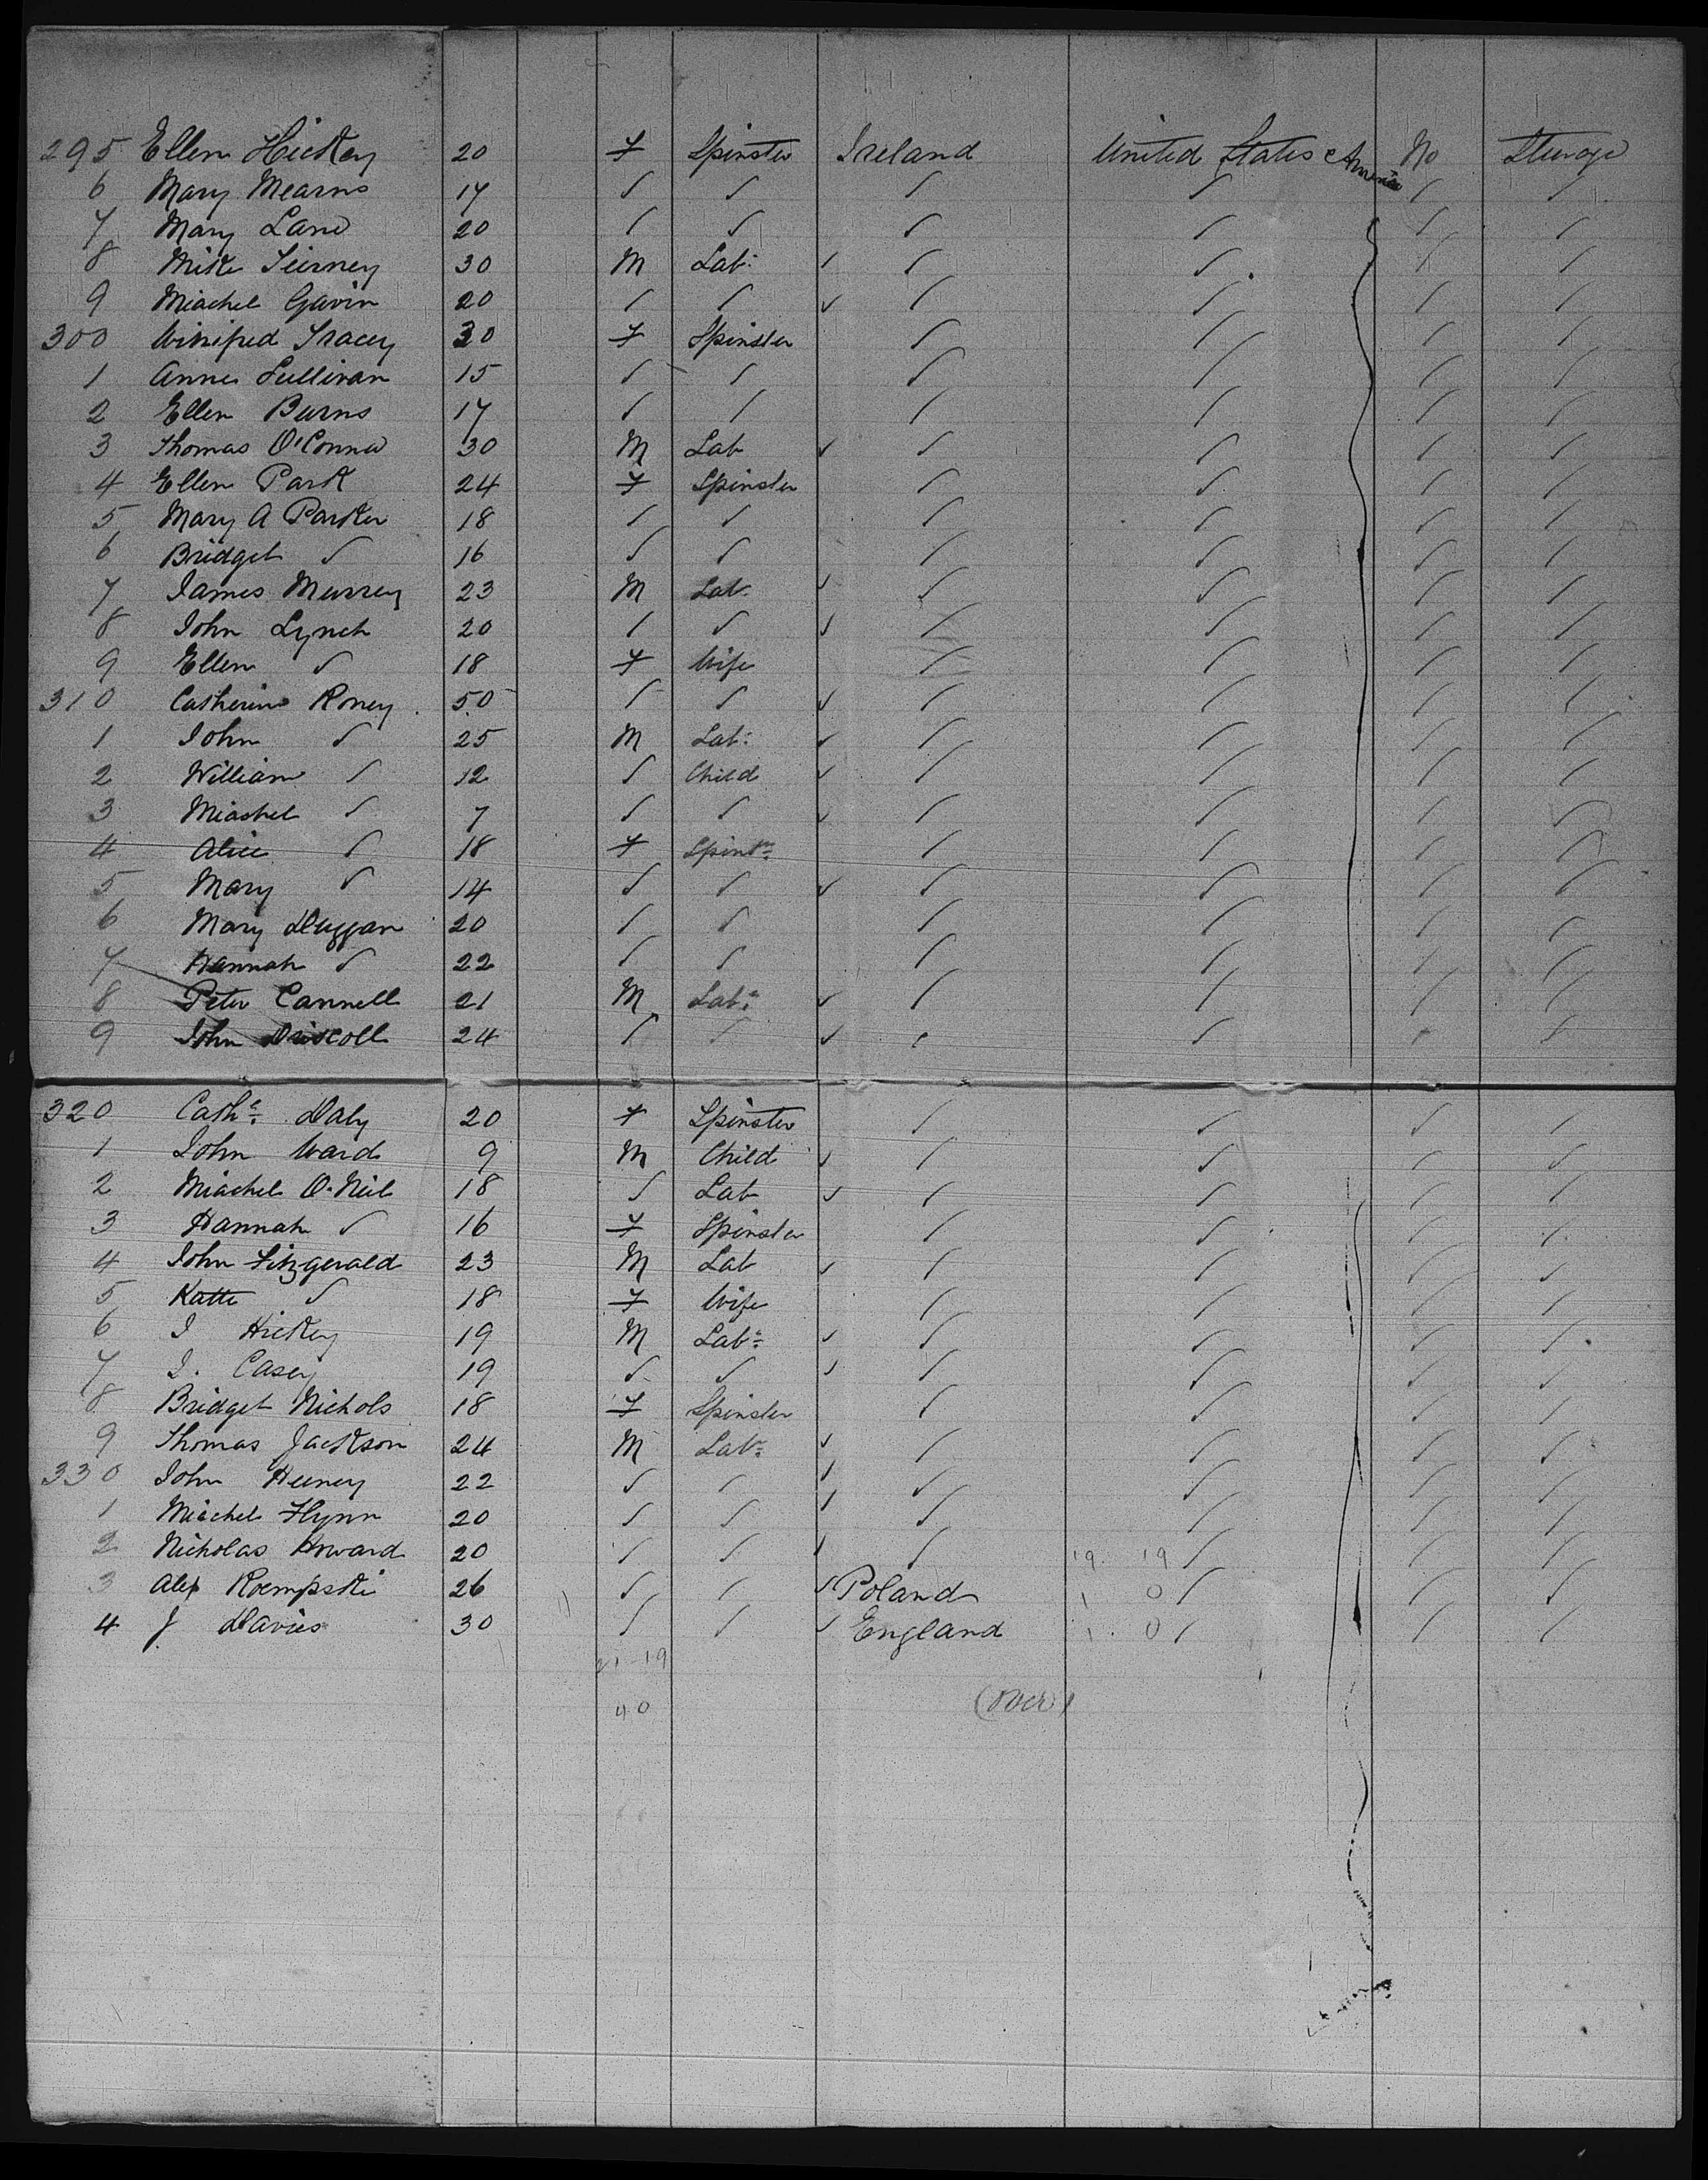 295 Ellen Hickey 20 F Spinster Ireland United States America No Steerage
6 Mary Mearns 17 ✓ ✓ ✓ ✓ ✓ ✓
7 Mary Lane 20 ✓ ✓ ✓ ✓ ✓ ✓
8 Mike Tierney 30 M Lab: ✓ ✓ ✓ ✓ ✓
9 Miachel Gavin 20 ✓ ✓ ✓ ✓ ✓ ✓ ✓
300 Winifred Tracey 30 F Spinster ✓ ✓ ✓ ✓
1 Annie Sullivan 15 ✓ ✓ ✓ ✓ ✓ ✓
2 Ellen Burns 17 ✓ ✓ ✓ ✓ ✓ ✓
3 Thomas O'Connor 30 M Lab ✓ ✓ ✓ ✓ ✓
4 Ellen Park 24 F Spinster ✓ ✓ ✓ ✓
5 Mary A Parker 18 ✓ ✓ ✓ ✓ ✓ ✓
6 Bridget ✓ 16 ✓ ✓ ✓ ✓ ✓ ✓
7 James Murrey 23 M Lab. ✓ ✓ ✓ ✓ ✓
8 John Lynch 20 ✓ ✓ ✓ ✓ ✓ ✓ ✓
9 Ellen ✓ 18 F Wife ✓ ✓ ✓ ✓
310 Catherine Roney 50 ✓ ✓ ✓ ✓ ✓ ✓ ✓
1 John ✓ 25 M Lab: ✓ ✓ ✓ ✓ ✓
2 William ✓ 12 ✓ Child ✓ ✓ ✓ ✓ ✓
3 Miachel ✓ 7 ✓ ✓ ✓ ✓ ✓ ✓ ✓
4 Alice ✓ 18 F Spinstr ✓ ✓ ✓ ✓
5 Mary ✓ 14 ✓ ✓ ✓ ✓ ✓ ✓ ✓
6 Mary Duggan 20 ✓ ✓ ✓ ✓ ✓ ✓
7 Hannah ✓ 22 ✓ ✓ ✓ ✓ ✓ ✓
8 Peter Cannell 21 M Labr ✓ ✓ ✓ ✓ ✓
9 John Driscoll 24 ✓ ✓ ✓ ✓ ✓ ✓ ✓
320 Cathe Daly 20 F Spinster ✓ ✓ ✓ ✓
1 John Ward 9 M Child ✓ ✓ ✓ ✓ ✓
2 Miachel O'Neil 18 ✓ Lab ✓ ✓ ✓ ✓ ✓
3 Hannah ✓ 16 F Spinster ✓ ✓ ✓ ✓
4 John Fitzgerald 23 M Lab ✓ ✓ ✓ ✓ ✓
5 Katte ✓ 18 F Wife ✓ ✓ ✓ ✓
6 J Hickey 19 M Labr ✓ ✓ ✓ ✓ ✓
7 J. Casey 19 ✓ ✓ ✓ ✓ ✓ ✓ ✓
8 Bridget Nichols 18 F Spinster ✓ ✓ ✓ ✓
9 Thomas Jackson 24 M Labr ✓ ✓ ✓ ✓ ✓
330 John Heeney 22 ✓ ✓ ✓ ✓ ✓ ✓ ✓
1 Miachel Flynn 20 ✓ ✓ ✓ ✓ ✓ ✓ ✓
2 Nicholas Howard 20 ✓ ✓ ✓ ✓ 19. 19 ✓ ✓ ✓
3 Alex 26 ✓ ✓ ✓ Poland 1 0 ✓ ✓ ✓
4 J Davies 30 ✓ ✓ ✓ England 1. 0 ✓ ✓ ✓
21-19
40 (Over)